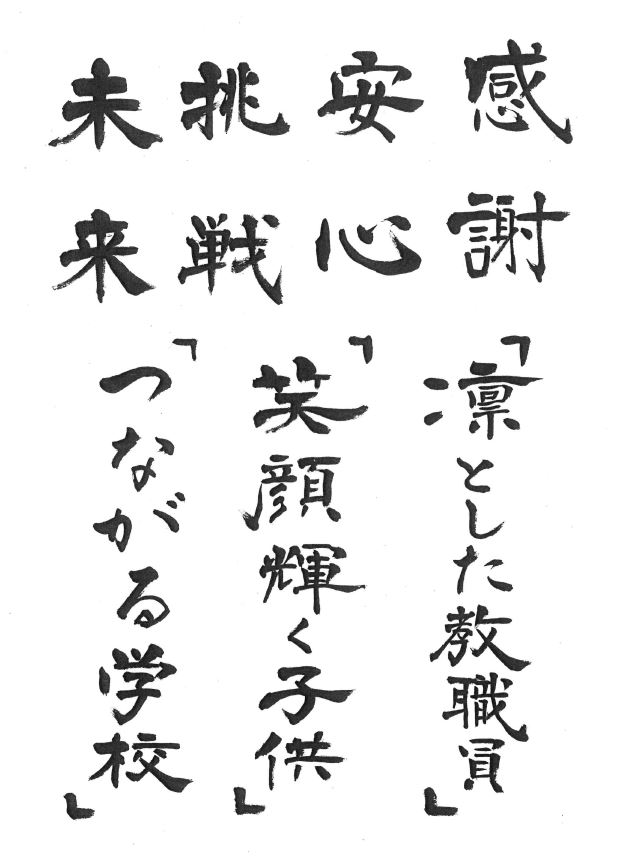 感謝
安心
挑戦
未来
「凛とした教職員」
「笑顔輝く子供」
「つながる学校」